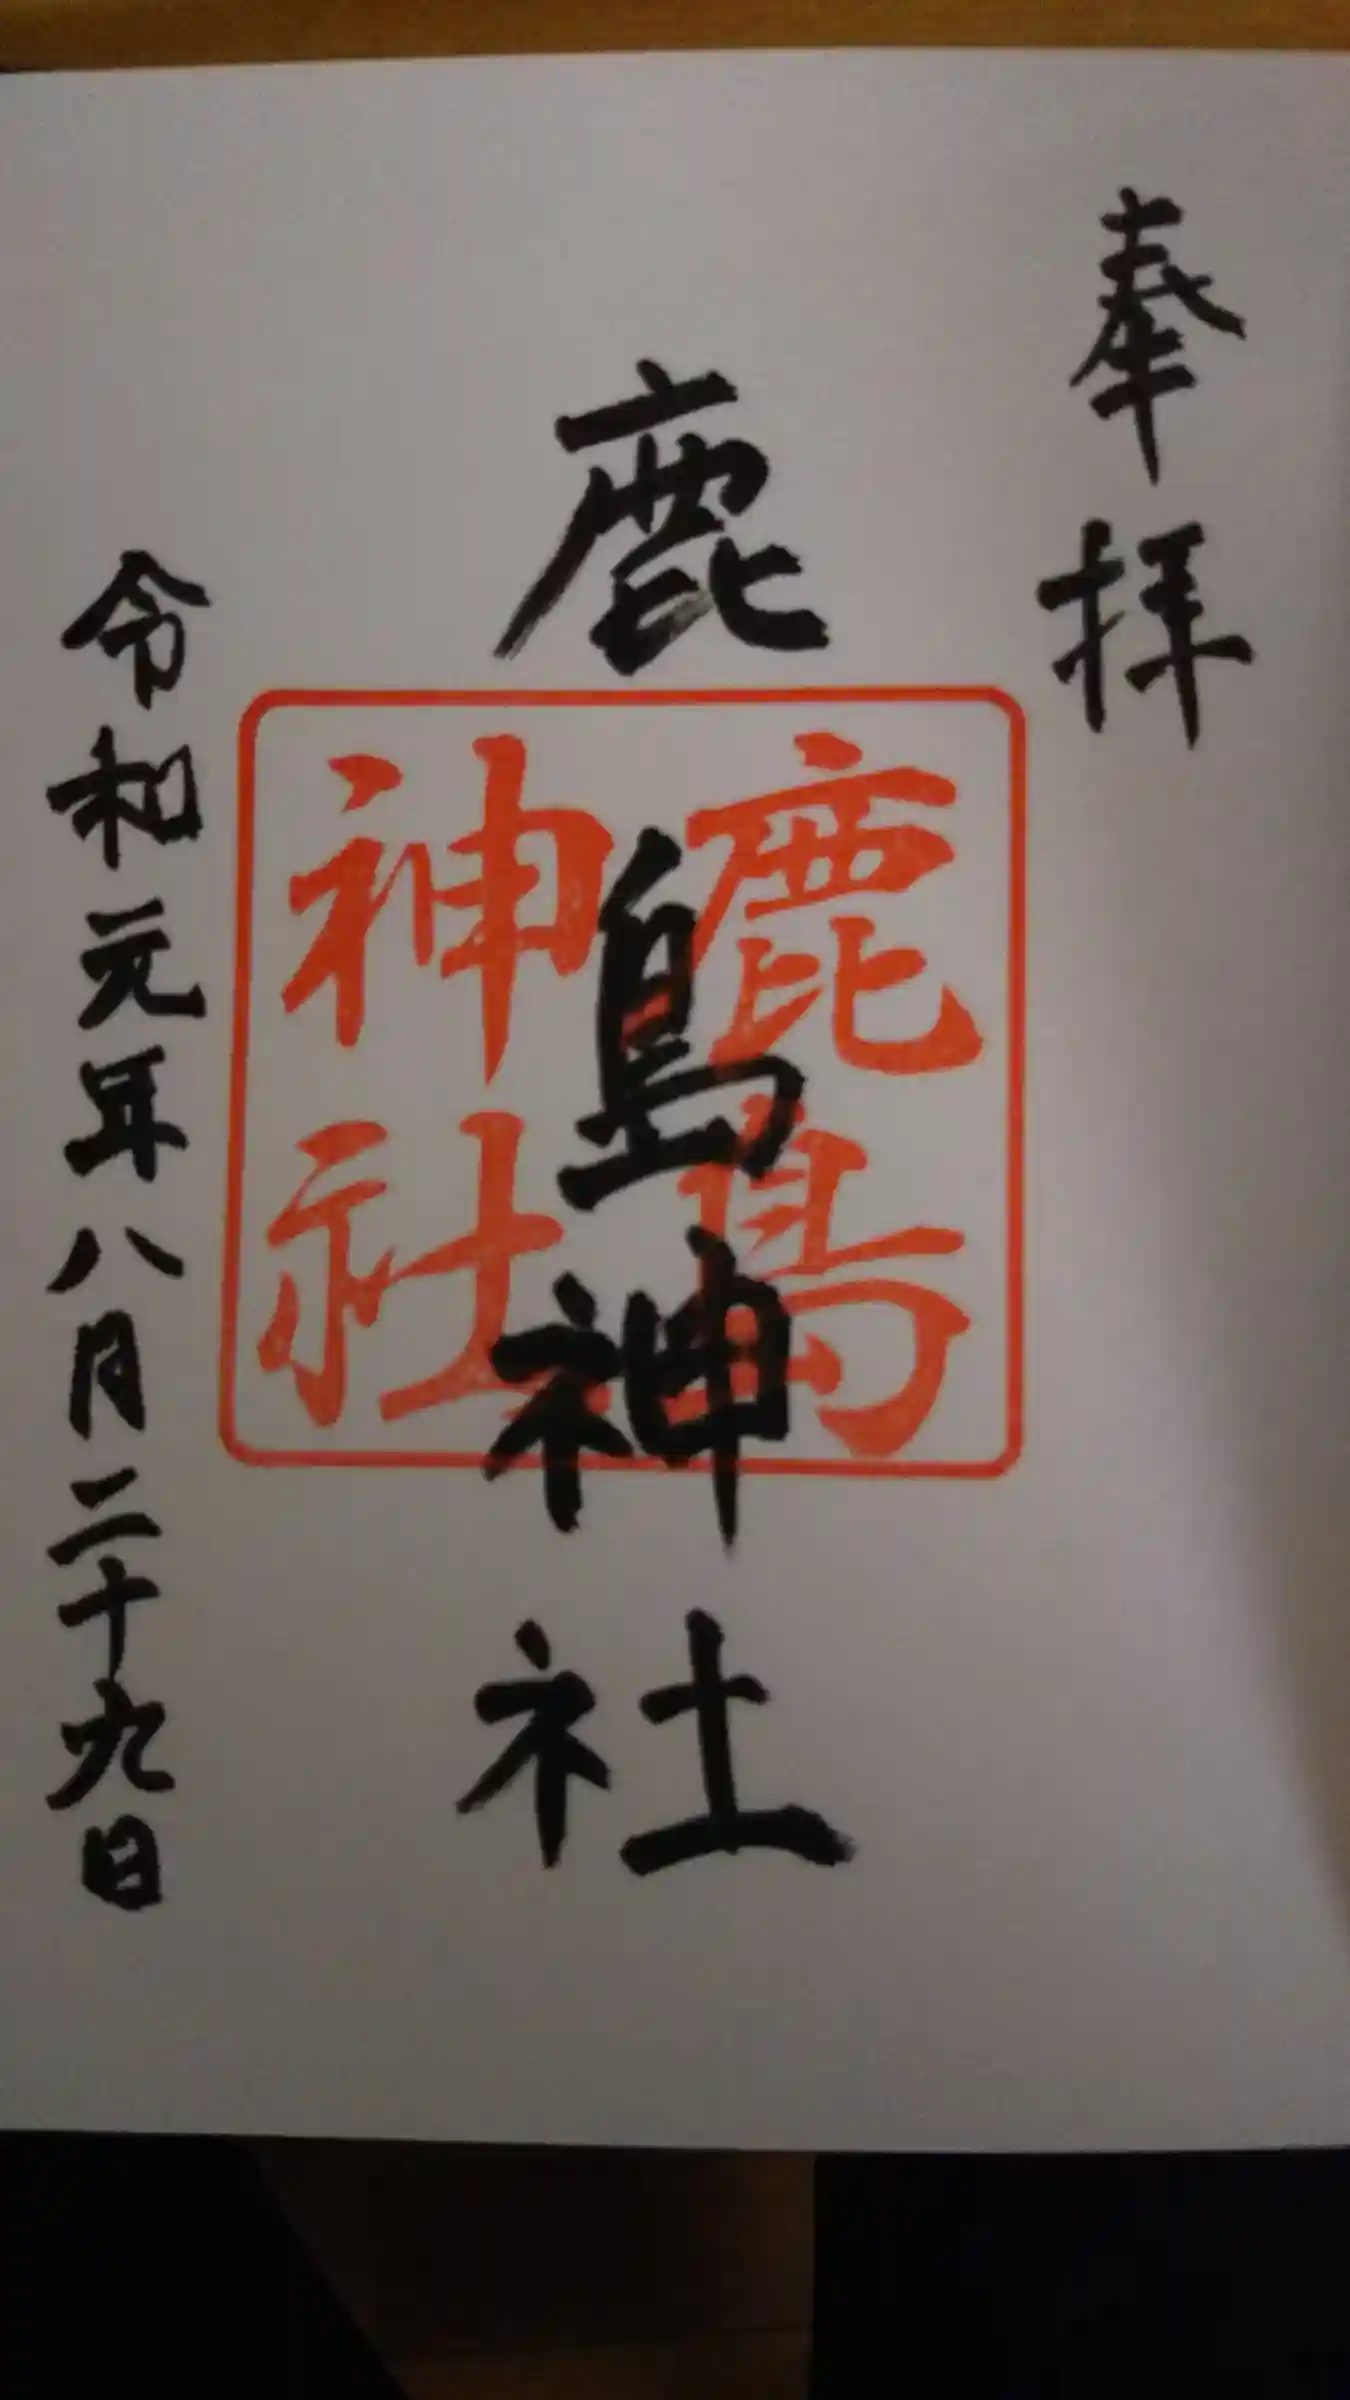 奉拝
鹿島神社
鹿島
神社
令和元年八月二十九日